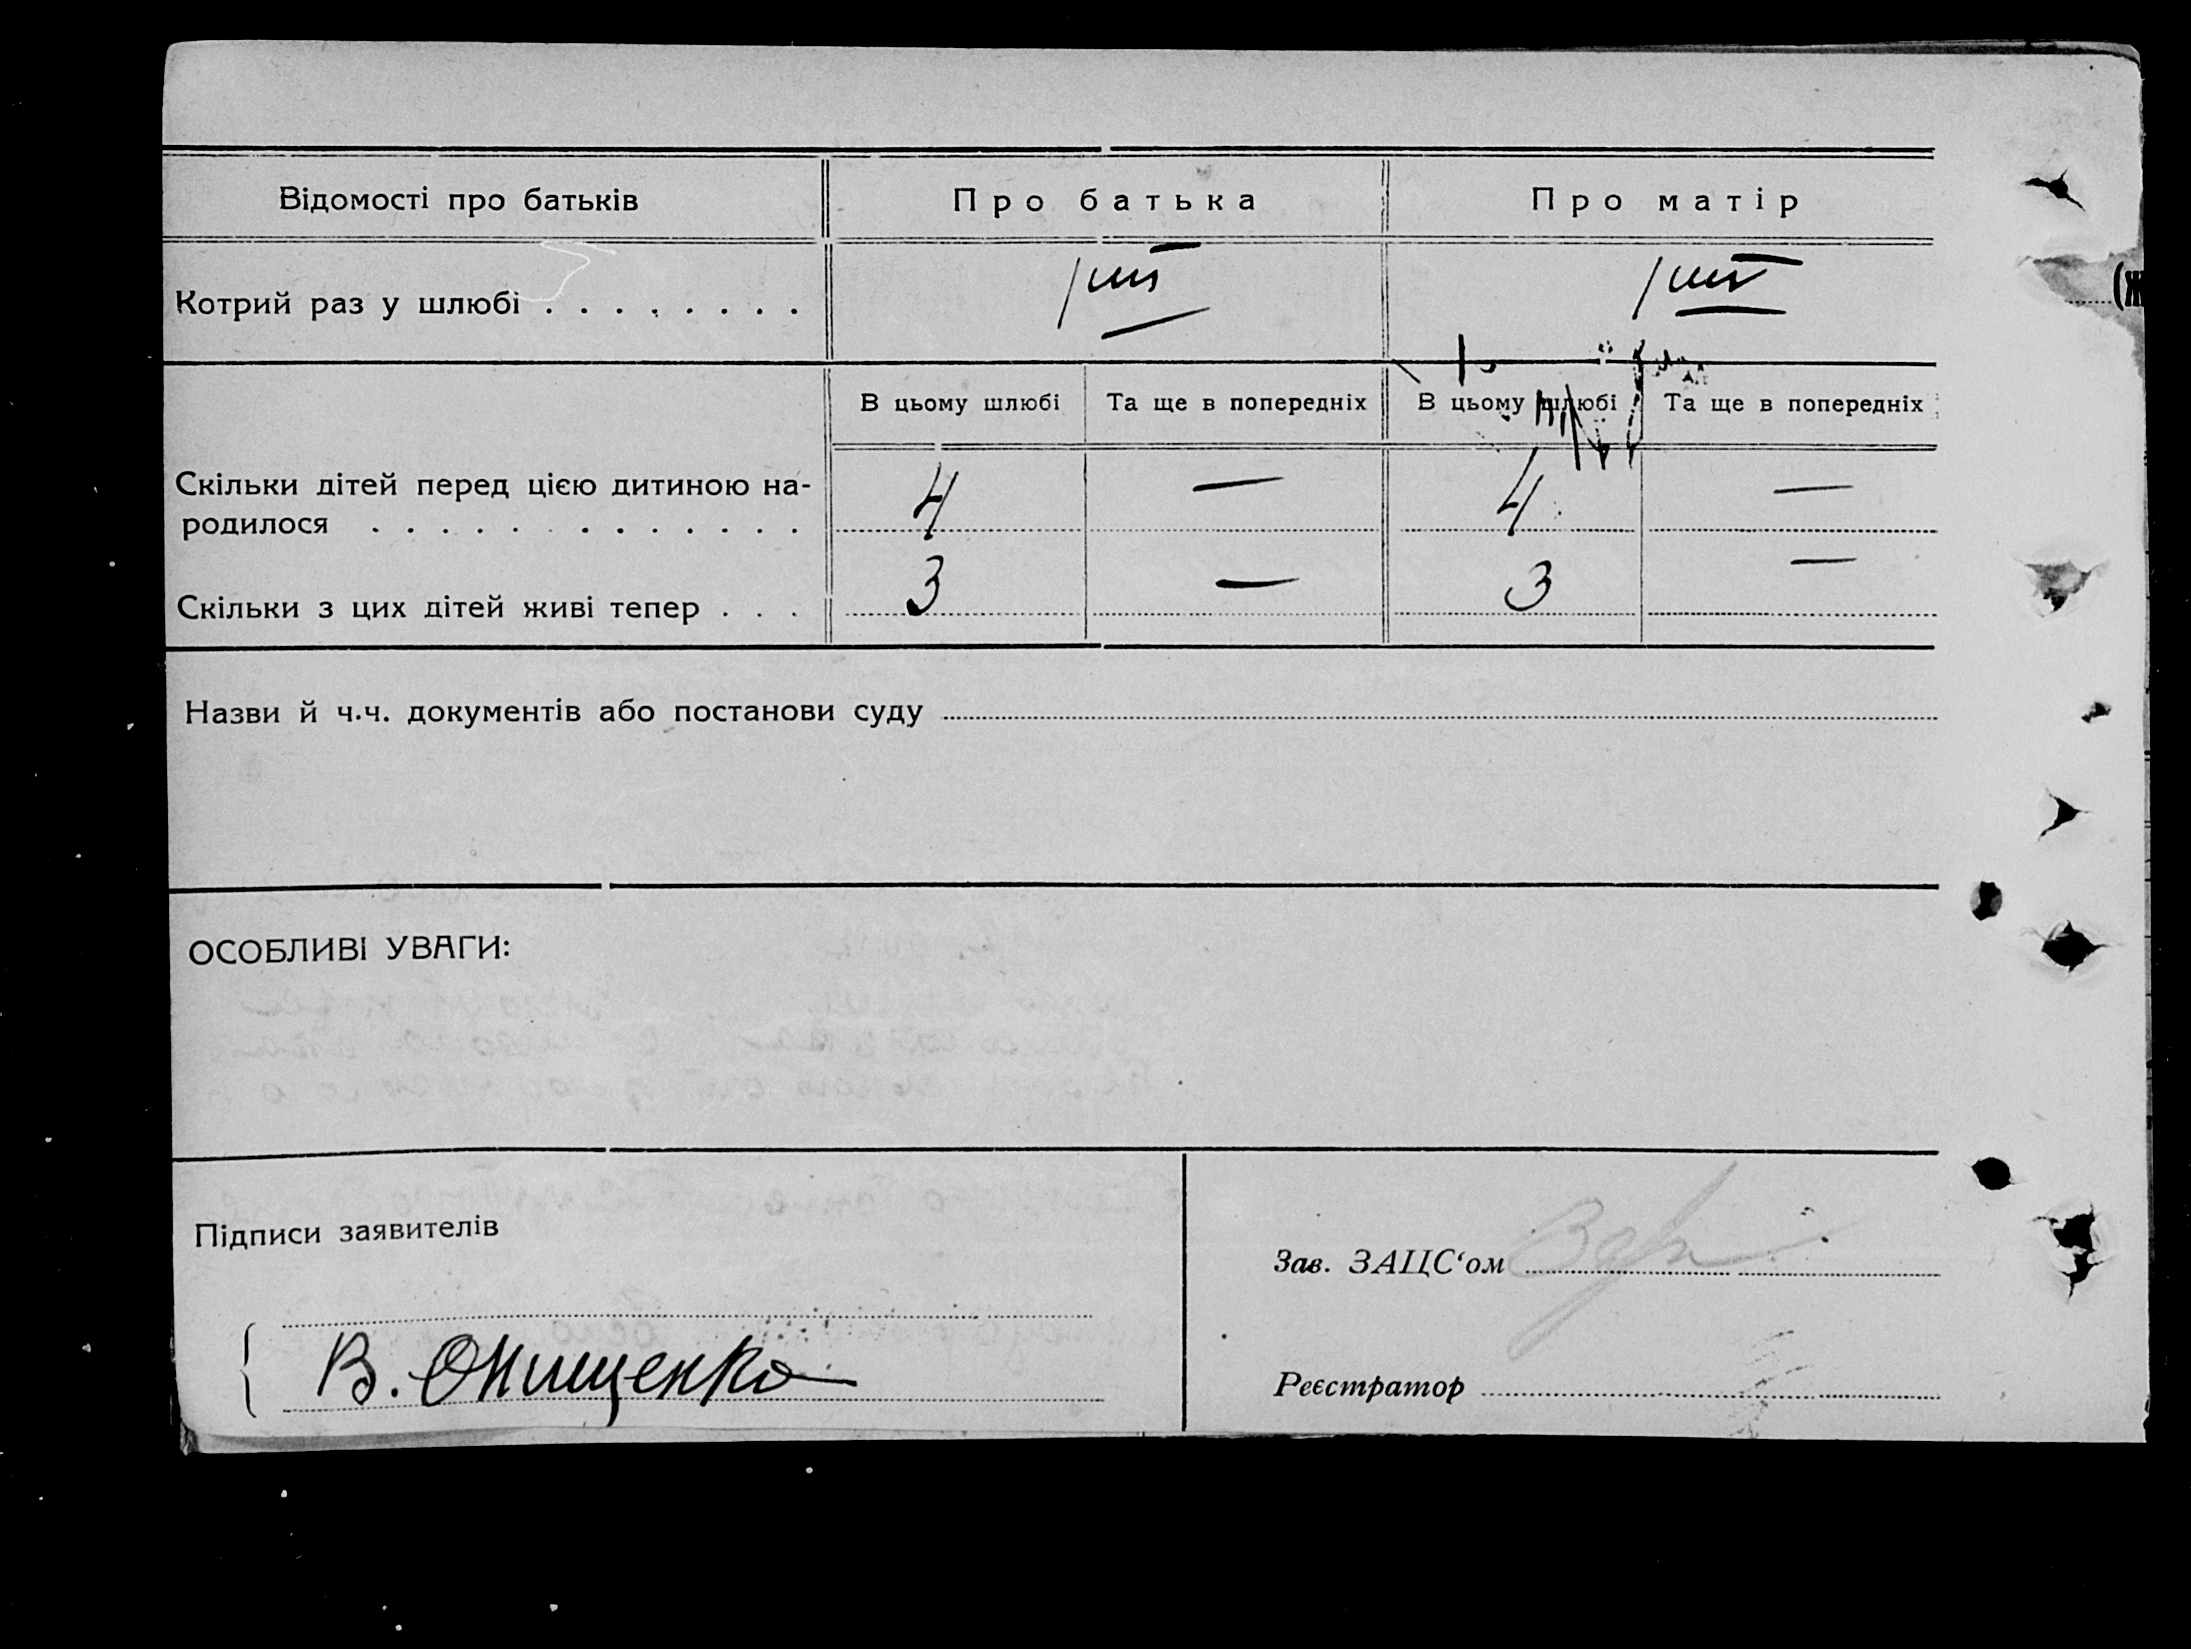 Відомості про батьків
Про батька
Про матір
Котрий раз у шлюбі . . . . . . . .
(Ж
В цьому шлюбі
Та ще в попередніх
В цьому шлюбі
Та ще в попередніх
Скільки дітей перед цією дитиною на-
родилося . . . . . . . . . . . . .
4
—
4
—
Скільки з цих дітей живі тепер . . .
3
—
3
—
Назви й ч.ч. документів або постанови суду
ОСОБЛИВІ УВАГИ:
Підписи заявителів
Зав. ЗАЦС‘ом
В. Онищенко
Реєстратор